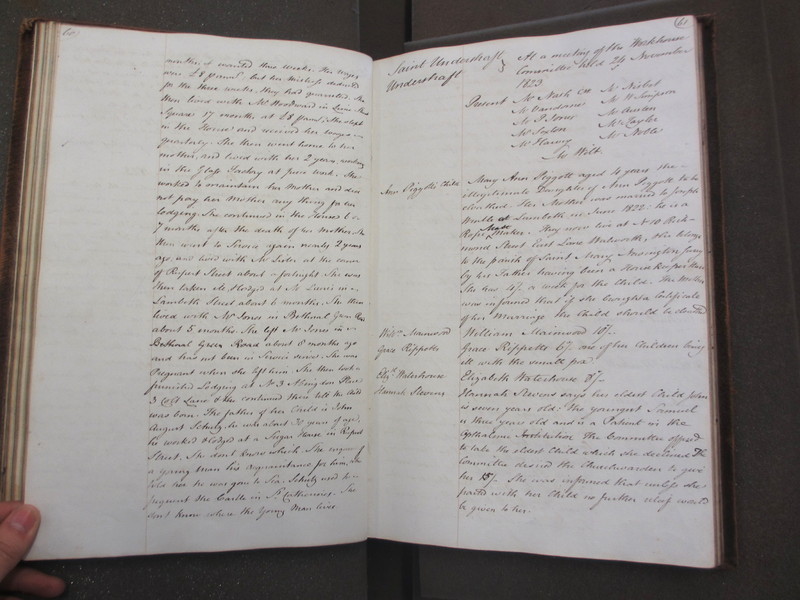 60
months, & wanted three weeks. Her wages
were £8 p ann but her Mistress deducted
for the three weeks, they had quarreled. She
then lived with Mr Woodward in Square
17 months at £8 p ann; She slept
in the House and received her wages
quarterly. She then went home to her
mother, and lived with her 2 years, working
in the Glass Factory at piece work. She
worked to maintain her Mother and did
not pay her Mother any thing for her
lodging. She continued in the House 6 or
7 months after the death of her Mother. She
then went to Service again nearly 2 years
ago, and lived with Mr at the corner
of Rupert Street about a fortnight. She was
then taken ill, & lodged at Mr in
Lambeth Street about 6 months. She then
lived with Mr Jones in Bethnal Green Road
about 5 months. She left Mr Jones in
Bethnal Green Road about 8 months ago
and has not been in Service since. She was
Pregnant when she left him. She then took a
furnished Lodging at No 3 Abingdon Place
3 Colt Lane & there continued there till the Child
was born. The father of her Child is John
August Schutz, he was about 30 years of age,
he worked & lodged at a Sugar House in Rupert
Street. She don't know which. She enquired of
a young man his acquaintance for him, who
told her he was gone to Sea. Schutz used to
frequent the Castle in St Catherines. She
don't know where the Young Man lives
61
Saint Andrew Undershaft
Undershaft
At a meeting of the Workhouse
Committee held 24 November
1823
Present Mr Nash
Mr Vandome
Mr P Jones
Mr Sexton
Mr Harvey
Mr Nisbet
Mr W Simpson
Mr Austen
Mr Taylor
Mr Noble
Mr Wilt
Ann Piggotts Child
Mary Ann Piggott aged 4 years the
illegitimate Daughter of Ann Piggott to be
cloathed. Her Mother was married to Joseph
Wimble at Lambeth in June 1822: he is a
Rope Maker. They now live at No 10 Rich-
mond Street East Lane Walworth, & he belongs
to the parish of Saint Mary Newington Surry
by his Father having been a Housekeeper there
She has 4/. a week for the Child. The Mother
was informed that if she brought a Certificate
of her Marriage the Child should be cloathed
Willm Maimood
William Maimood 10/.
Grace Rippetts
Grace Rippetts 6/. one of her Children being
ill with the small pox.
Elizth Waterhouse
Elizabeth Waterhouse 8/.
Hannah Stevens
Hannah Stevens says her eldest Child John
is seven years old. The youngest Samuel
is three years old and is a Patient in the
Opthalmic Institution. The Committee offered
to take the eldest Child which she declined. The
Committee desired the Churchwarden to give
her 15/. She was informed that unless she
parted with her Child no further relief would
be given to her.